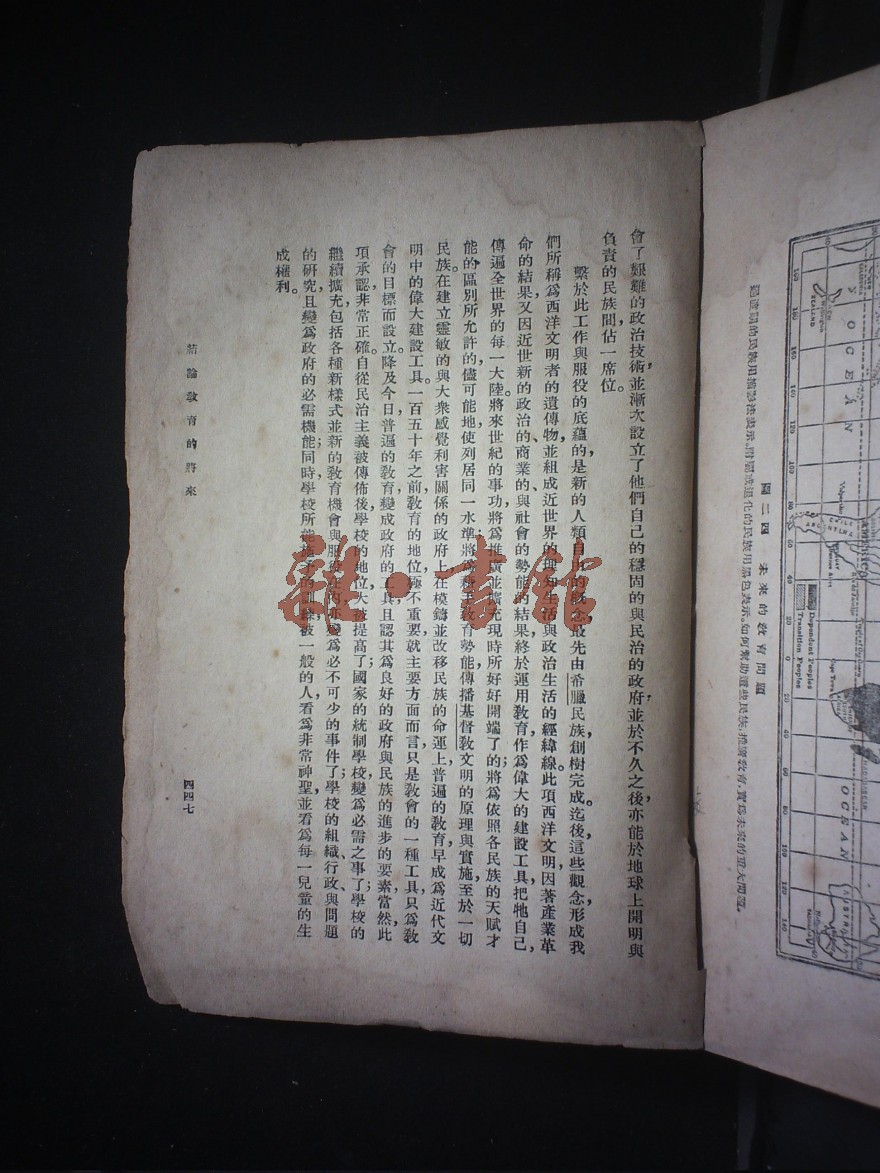 會了艱難的政治技術，並漸次設立了他們自己的穩固的與民治的政府，並於不久之後，亦能於地球上開明與
負責的民族間佔一席位。
繫於此工作與服役的底蘊的，是新的人類自由的概念，最先由希臘民族創樹完成。迄後，這些觀念，形成我
們所稱爲西洋文明者的遺傳物，並組成近世界的理知生活與政治生活的經緯線。此項西洋文明，因著產業革
命的結果，又因近世新的政治的、商業的、與社會的勢能的結果，終於運用教育，作爲偉大的建設工具，把牠自己，
傳遍全世界的每一大陸。將來世紀的事功，將爲推廣並擴充現時所好好開端了的；將爲依照各民族的天賦才
能的區別所允許的，儘可能地使列居同一水準；將爲藉手教育勢能，傳播基督教文明的原理與實施，至於一切
民族。在建立靈敏的與大衆感覺利害關係的政府上，在模鑄並改移民族的命運上，普遍的教育，早成爲近代文
明中的偉大建設工具。一百五十年之前，教育的地位，極不重要，就主要方面而言，只是教會的一種工具，只爲教
會的目標而設立。降及今日，普遍的教育，變成政府的工具，且認其爲良好的政府與民族的進步的要素，當然，此
項承認，非常正確。自從民治主義被傳佈後，學校的地位，大被提高了；國家的統制學校，變爲必需之事了；學校的
繼續擴充，包括各種新樣式，並新的教育機會與服役在內，亦變爲必不可少的事件了；學校的組織、行政、與問題
的研究，且變爲政府的必需機能；同時，學校所能施予的訓練，被一般的人，看爲非常神聖，並看爲每一兒童的生
成權利。
結論 教育的將來
四四七
圖二四 未來的教育問題
Dependent Peoples
Transition Peoples
OCEAN
OCEAN
雜·書館